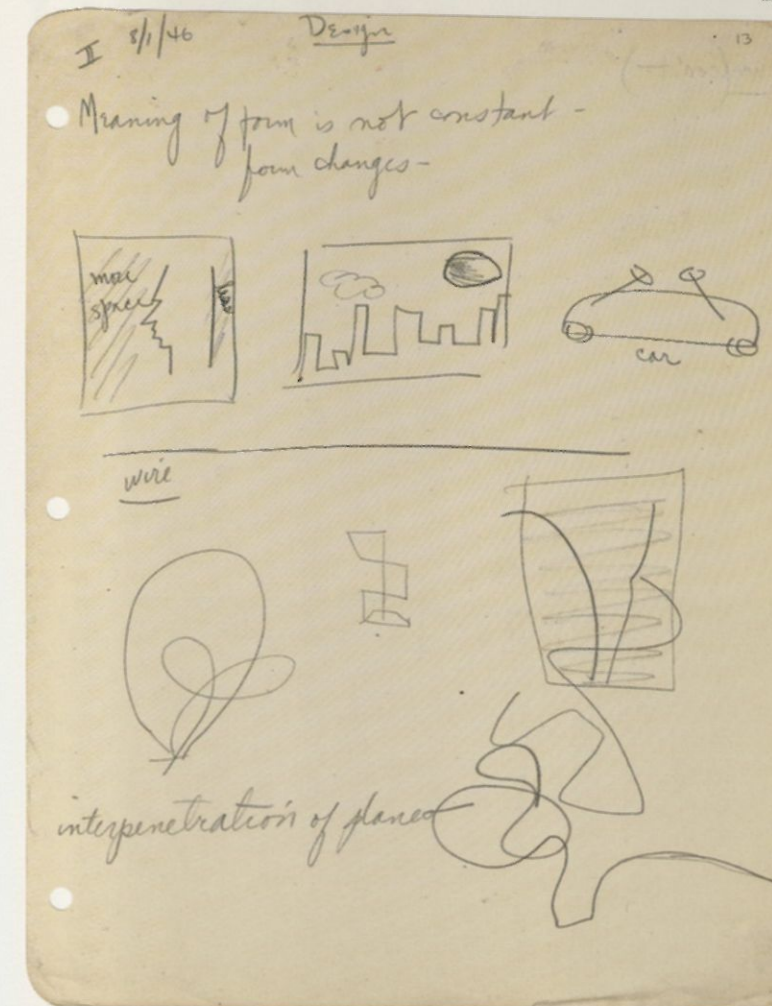 II 8/1/46 Design 13
Meaning of form is not constant -
form changes -
more
space
car
wire
interpenetration of planes